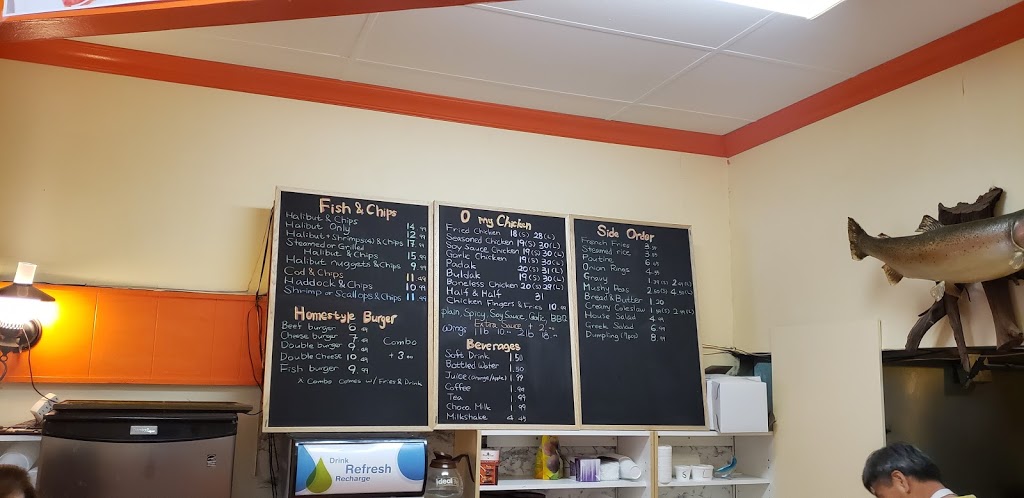 Fish & Chips
Halibut & Chips 14.99
Halibut Only 12.99
Halibut + Shrimps(4) & Chips 17.99
Steamed or Grilled
Halibut & Chips 15.99
Halibut nuggets & Chips 9.99
Cod & Chips 11.99
Haddock & Chips 10.99
Shrimp or Scallops & Chips 11.99
Homestyle Burger
Beef burger 6.49
Cheese burger 7.49
Double burger 9.49
Double Cheese 10.49
Fish burger 9.99
Combo
+ 3.00
X Combo Comes w/ Fries & Drink
O my Chicken
Fried Chicken 18(S) 28(L)
Seasoned Chicken 19(S) 30(L)
Soy Sauce Chicken 19(S) 30(L)
Garlic Chicken 19(S) 30(L)
Padak 20(S) 31(L)
Buldak 19(S) 30(L)
Boneless Chicken 20(S) 29(L)
Half & Half 31
Chicken Fingers & Fries 10.99
plain, Spicy, Soy Sauce, Garlic, BBQ
Extra Sauce + 2.00
Wings 1 lb 10.00 2 lb 18.00
Beverages
Soft Drink 1.50
Bottled Water 1.50
Juice (orange/apple) 1.99
Coffee 1.99
Tea 1.99
Choco. Milk 1.99
Milkshake 4.49
Side Order
French Fries 3.99
Steamed rice 3.99
Poutine 6.49
Onion Rings 4.99
Gravy
Mushy Peas
Bread & Butter 1.20
Creamy Coleslaw
House Salad 4.99
Greek Salad 6.99
Dumpling (7pcs) 8.99
Drink
Refresh
Recharge
ideal